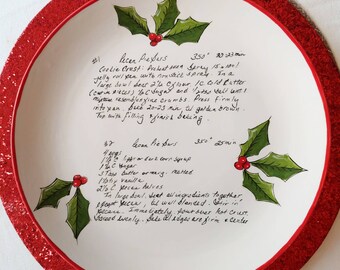 #1 Pecan Pie Bars 350° 20-23 min
Cookie Crust: Preheat oven. Spray 15 x 10 x 1
jelly roll pan with nonstick spray. In a
large bowl beat 2 3/4 C flour 1 C Cold Butter
1/2 C Sugar and salt until
mixture resembles fine crumbs. Press firmly
into pan. Bake 20-23 min. til golden brown.
Top with filling & finish baking
#2 Pecan Pie Bars 350° 25 min
4 eggs
Light or dark corn syrup
C Sugar
3 Tbsp butter or marg. melted
1 1/2 tsp vanilla
2 1/2 C pecan halves
In large bowl beat all ingredients together
except pecans, til well blended. Stir in
pecans. Immediately pour over hot crust.
Spread evenly. Bake til edges are firm & center